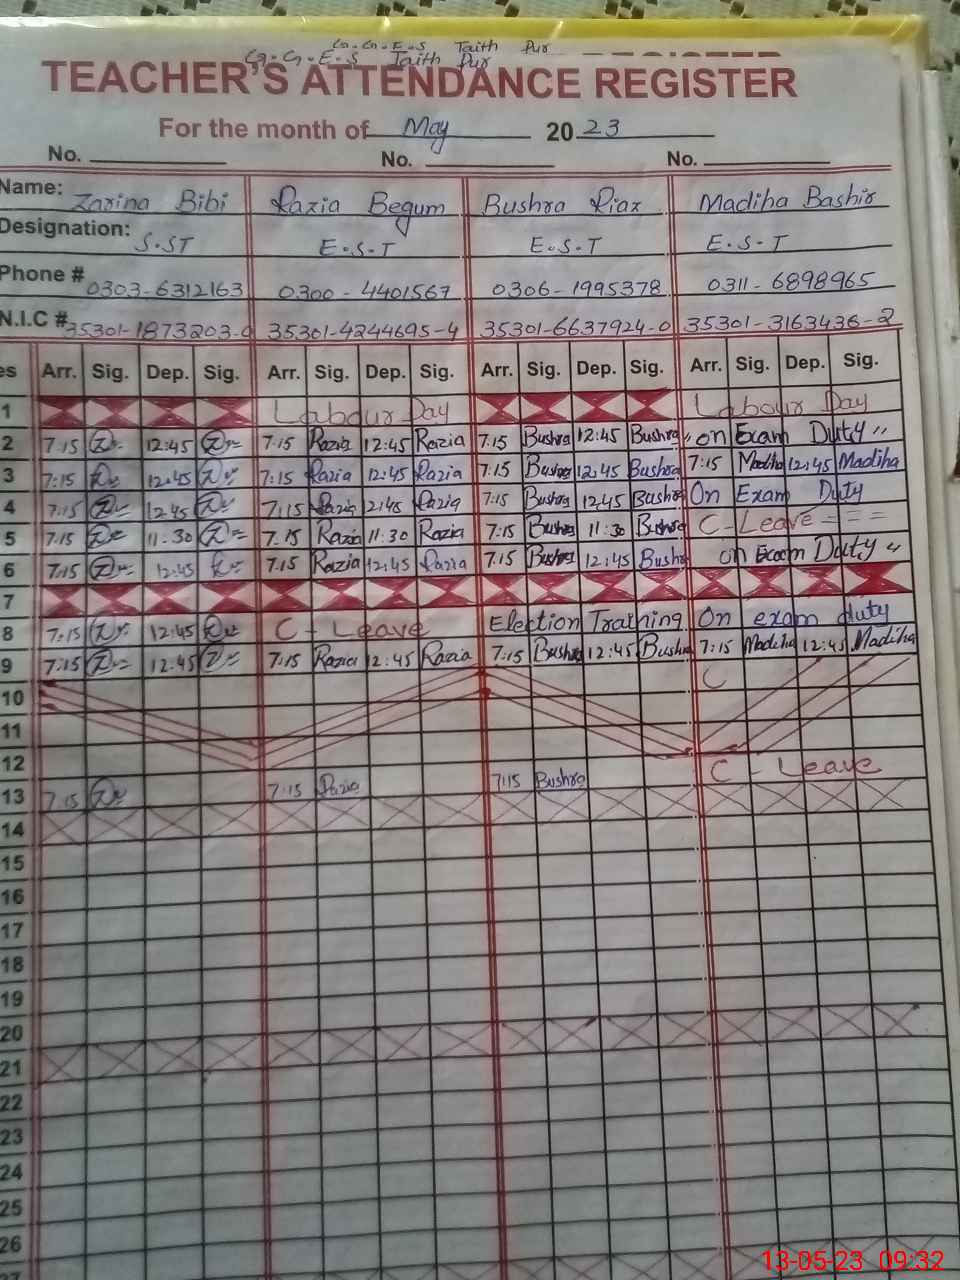 G.G.E.S Jaith Pur
G.G.E.S Jaith Pur
TEACHER'S ATTENDANCE REGISTER
For the month of May 2023
No. No. No.
Name: Zarina Bibi Razia Begum Bushra Riaz Madiha Bashir
Designation: S.ST E.S.T E.S.T E.S.T
Phone # 0303-6312163 0300-4401567 0306-1995378 0311-6898965
N.I.C # 35301-1873203- 35301-4244695-4 35301-6637924-0 35301-3163436-2
es Arr. Sig. Dep. Sig. Arr. Sig. Dep. Sig. Arr. Sig. Dep. Sig. Arr. Sig. Dep. Sig.
1 Labour Day Labour Day
2 7:15 12:45 7:15 Razia 12:45 Razia 7:15 Bushra 12:45 Bushra "on Exam Duty"
3 7:15 12:45 7:15 Razia 12:45 Razia 7:15 Bushra 12:45 Bushra 7:15 Madiha 12:45 Madiha
4 7:15 12:45 7:15 Razia 12:45 Razia 7:15 Bushra 12:45 Bushra On Exam Duty
5 7:15 11:30 7:15 Razia 11:30 Razia 7:15 Bushra 11:30 Bushra C-Leave
6 7:15 12:45 7:15 Razia 12:45 Razia 7:15 Bushra 12:45 Bushra on Exam Duty"
7
8 7:15 12:45 C-Leave Election Training On exam duty
9 7:15 12:45 7:15 Razia 12:45 Razia 7:15 Bushra 12:45 Bushra 7:15 Madiha 12:45 Madiha
10 C
11
12 C-Leave
13 7:15 7:15 Razia 7:15 Bushra
14
15
16
17
18
19
20
21
22
23
24
25
26
13-05-23 09:32